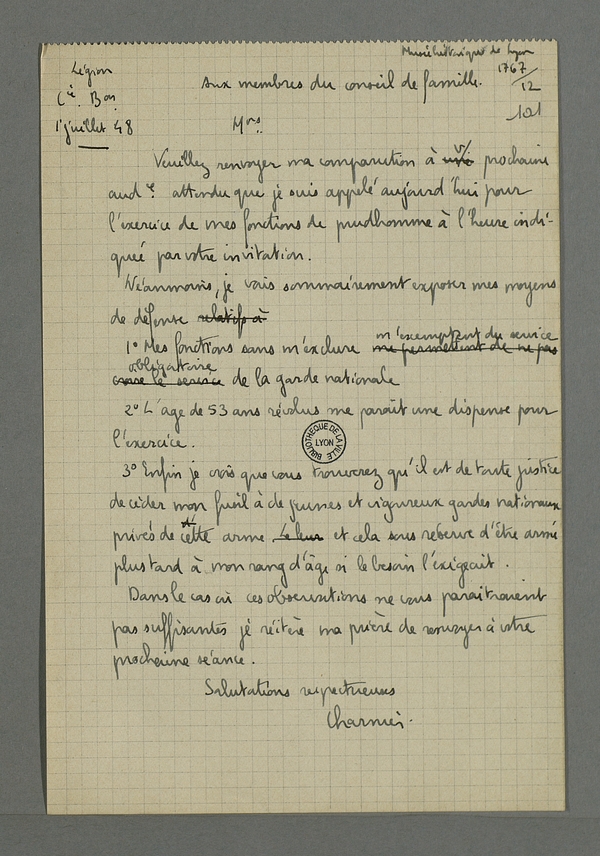 Musée historique de Lyon
1767/12
121
Légion
Cie. Bon.
1er juillet 48
Aux membres du conseil de famille.
Mrs.
Veuillez renvoyer ma comparution à v/ prochaine
aud ce. attendu que je suis appelé aujourd'hui pour
l'exercice de mes fonctions de prudhomme à l'heure indi-
queé par votre invitation.
Néanmoins, je vais sommairement exposer mes moyens
de défense relatifs à
1° Mes fonctions sans m'exclure me permettent de ne pas
m'exemptent du service
obligatoire
le service de la garde nationale
2° L'age de 53 ans révolus me parait une dispense pour
l'exercice.
BIBLIOTHEQUE DE LA VILLE LYON
3° Enfin je crois que vous trouverez qu'il est de toute justice
de céder mon fusil à de jeunes et vigoureux gardes nationaux
privés de cette arme Le leur et cela sous réserve d'être armé
plus tard à mon rang d'âge si le besoin l'exigeait.
Dans le cas où ces observations ne vous paraitraient
pas suffisantes je réitère ma prière de renvoyer à votre
prochaine séance.
Salutations respectueuses
Charnier.